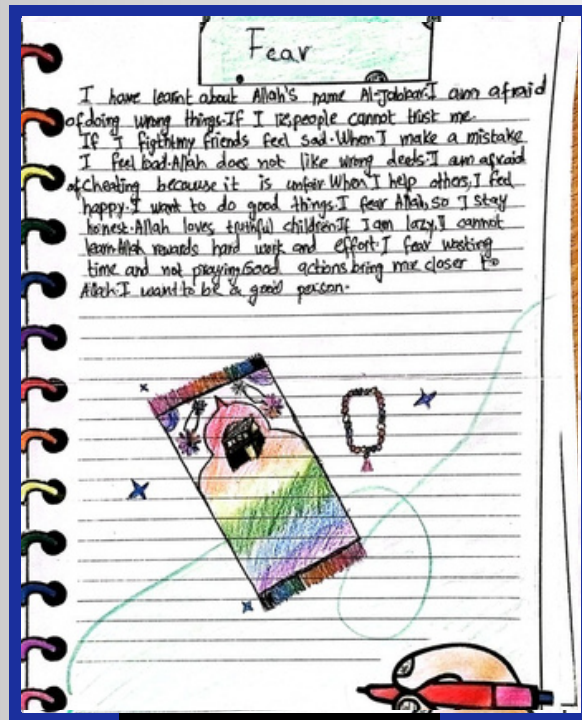 Fear
I have learnt about Allah's name Al-Jabbar.I am afraid
of doing wrong things.If I people cannot trust me.
If I figth my friends feel sad.When I make a mistake
I feel bad.Allah does not like wrong deeds.I am afraid
of cheating because it is unfair.When I help others,I feel
happy.I want to do good things.I fear Allah,so I stay
honest.Allah loves truthful children.If I am lazy,I cannot
learn.Allah rewards hard work and effort.I fear wasting
time and not praying.Good actions bring me closer to
Allah.I want to be a good person.